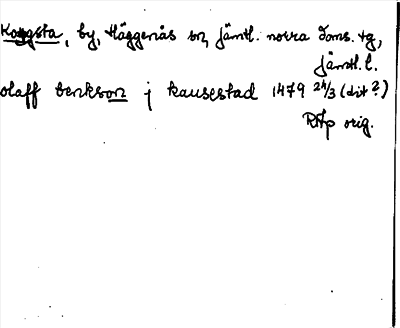 Kougsta, by, Häggenås sn, jämtl. norra doms. tg,
jämtl. l.
olaff benkson j kausestad 1479 24/3 (dit?)
RAp orig.